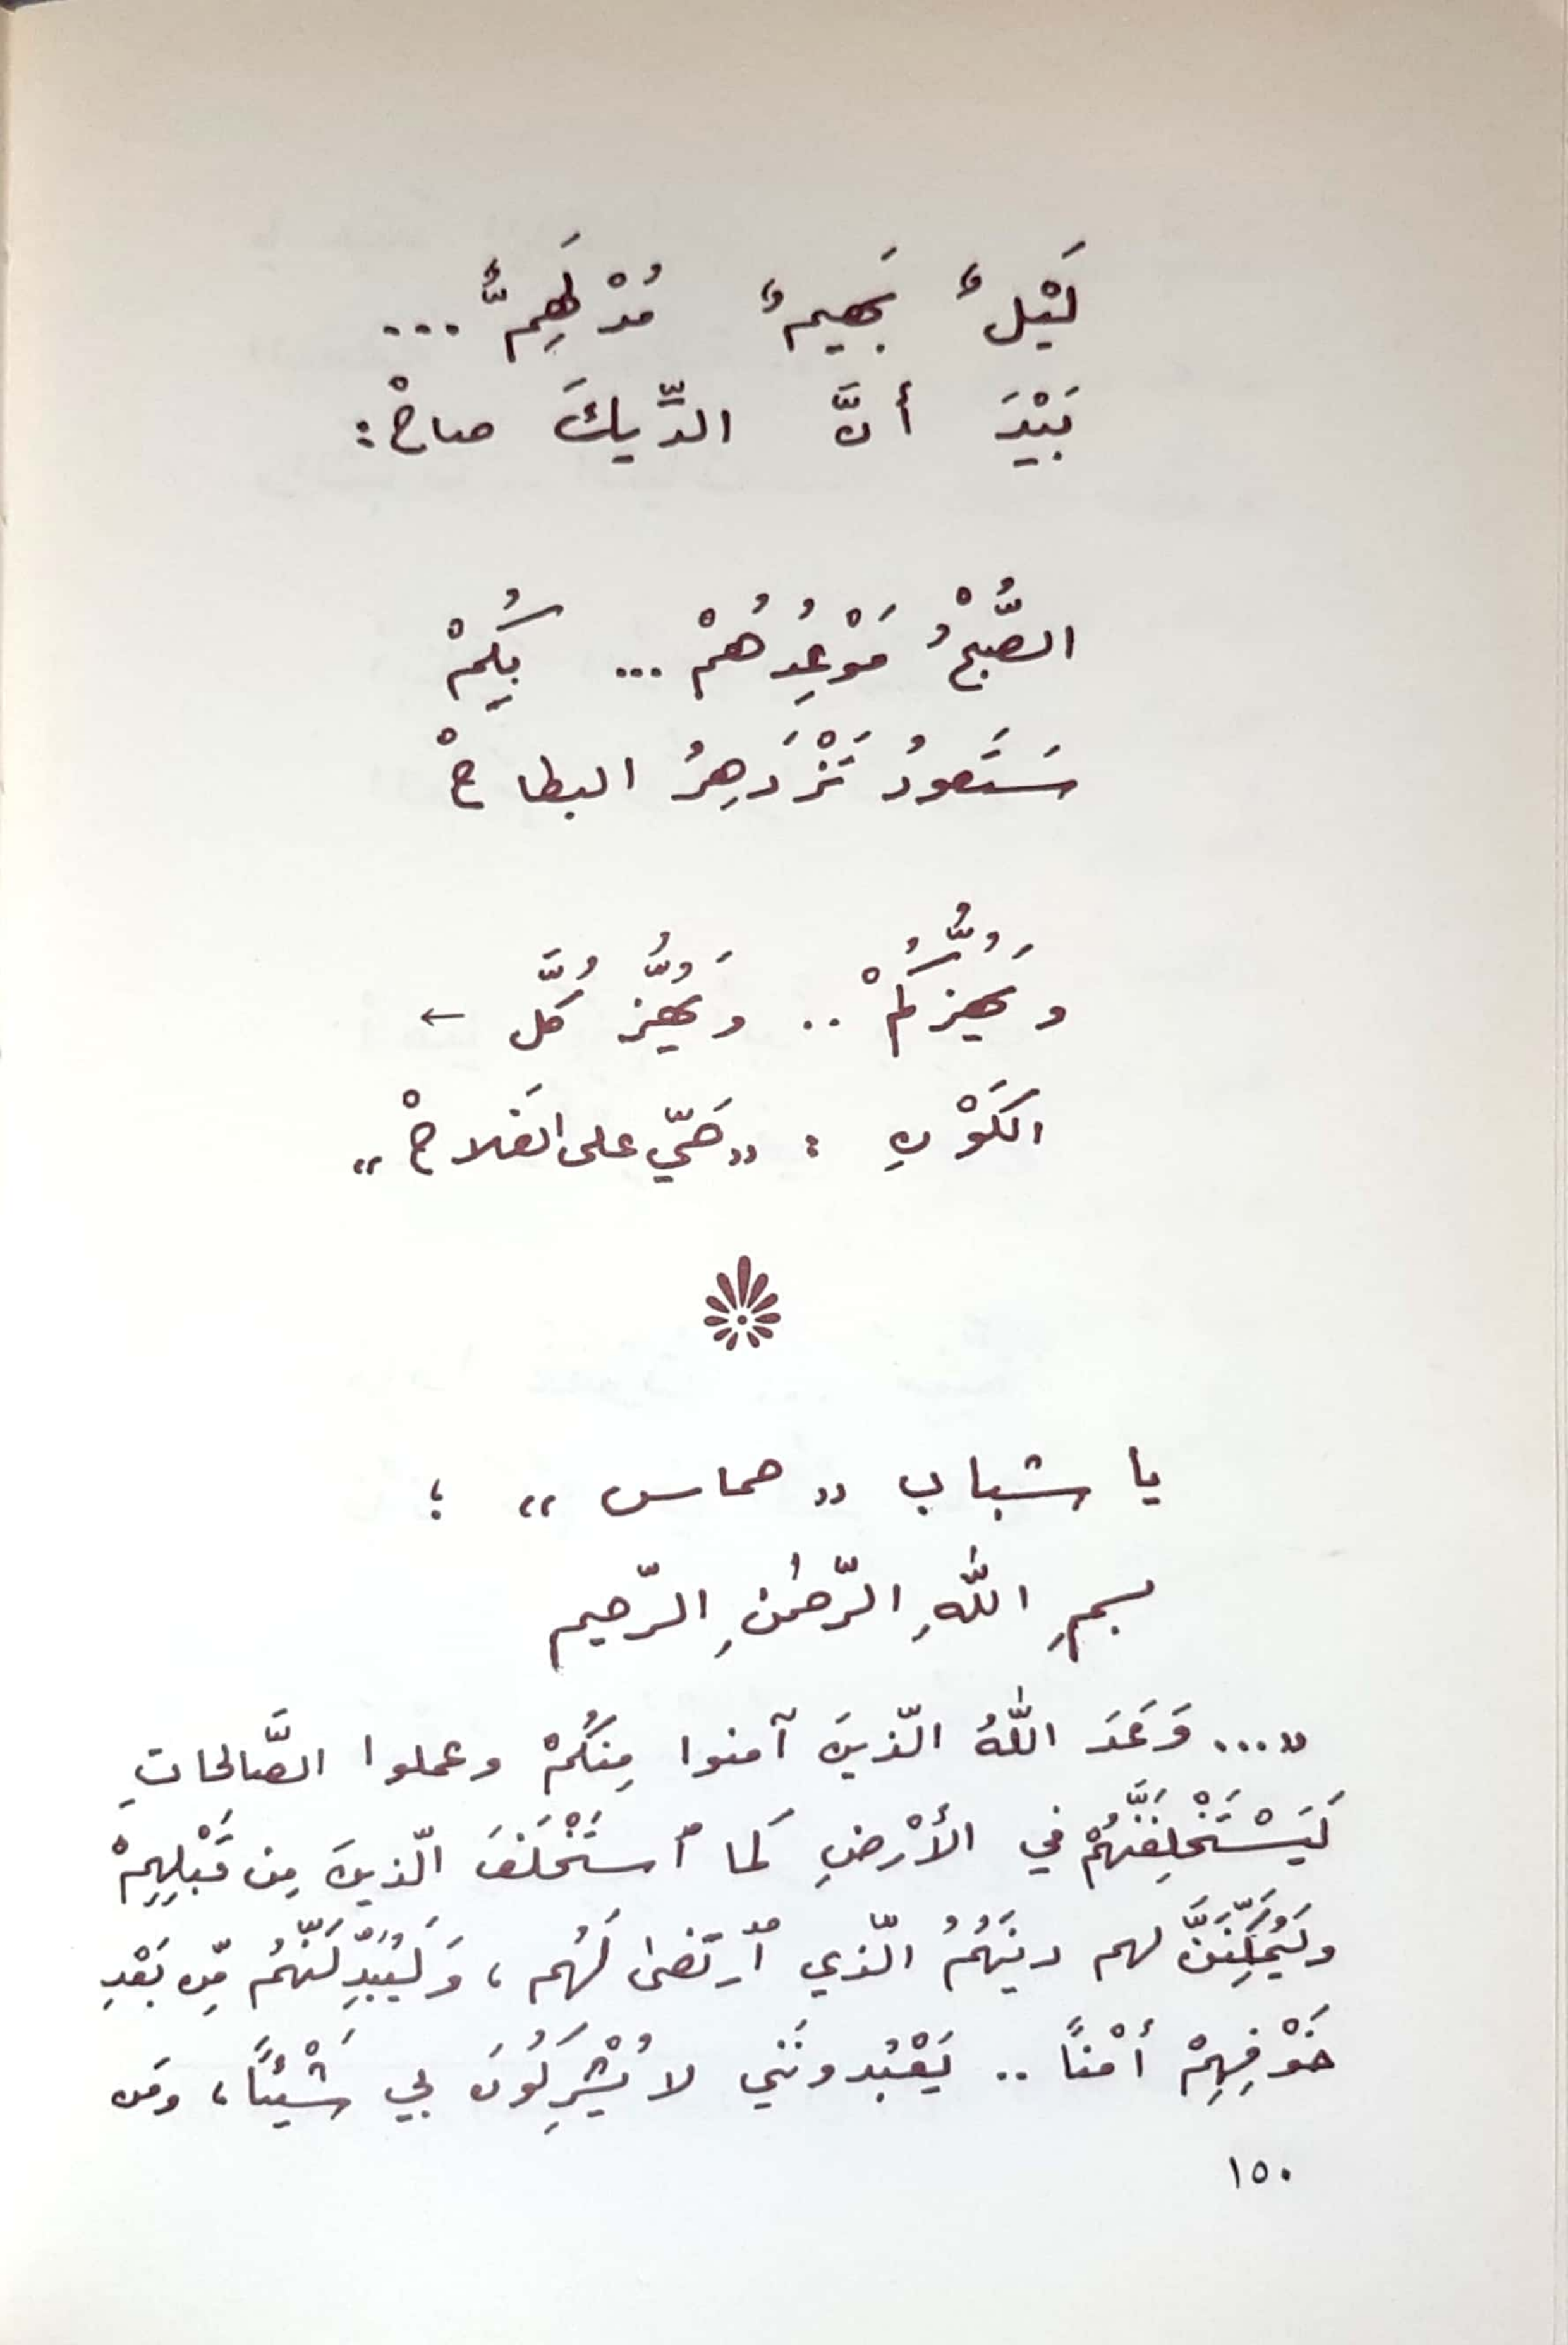 لَيْلٌ بَهيمٌ مُدْلَهِمٌّ ...
بَيْدَ أنَّ الدِّيكَ صاحْ :
الصُّبْحُ مَوْعِدُهُمْ ... بِكُمْ
سَتَعودُ تَزْدَهِرُ البطاحْ
وَيَهُزُّكُمْ .. وَيَهُزُّ كُلَّ ←
الكَوْنِ : «حَيّ على الفَلاحْ»
يا شباب «حماس» ؛
بسمِ اللهِ الرّحمٰنِ الرّحيم
«... وَعَدَ اللهُ الّذينَ آمنوا مِنكُمْ وعملوا الصَّالحاتِ
لَيَسْتَخْلِفَنَّهُمْ في الأرْضِ كَما ٱسْتَخْلَفَ الّذينَ مِن قَبْلِهِمْ
ولَيُمَكِّنَنَّ لهم دينَهُمُ الّذي ٱرْتَضىٰ لَهُم ، وَلَيُبَدِّلَنّهُم مِّن بَعْدِ
خَوْفِهِمْ أمْناً .. يَعْبُدونَني لا يُشْرِكُونَ بي شَيْئاً ، ومَن
١٥٠